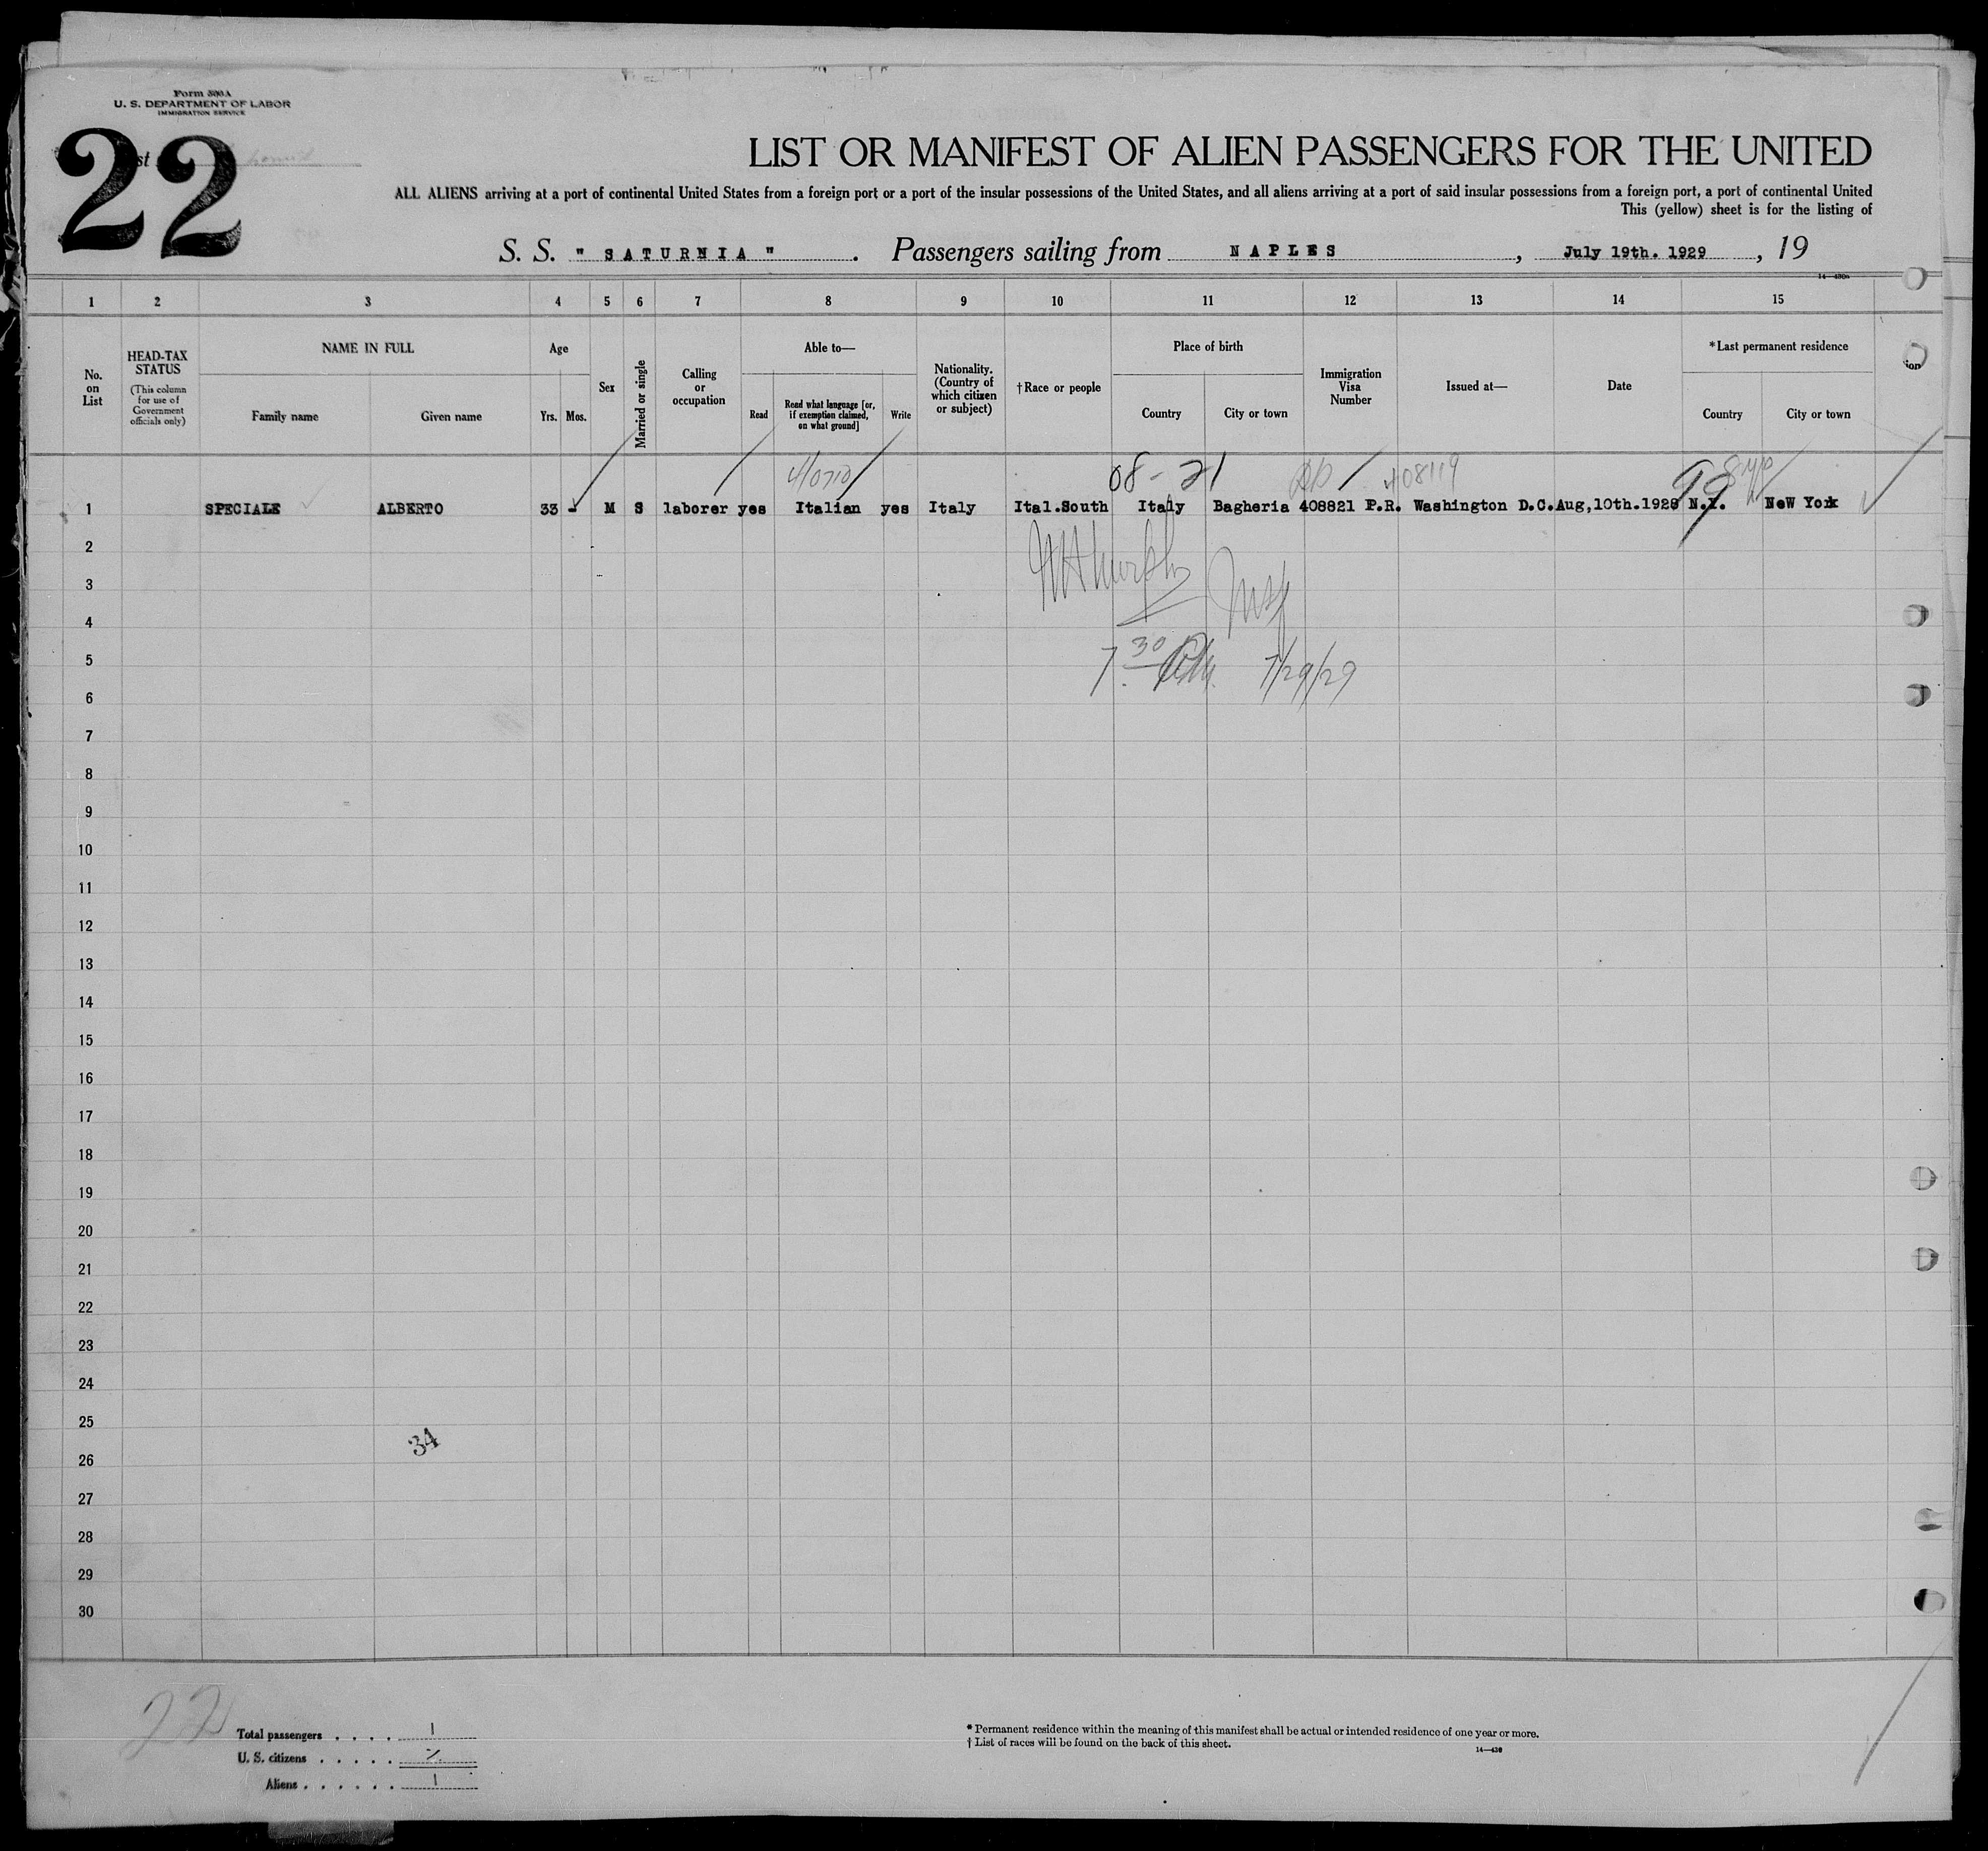 Form 500 A
U. S. DEPARTMENT OF LABOR
IMMIGRATION SERVICE
22
LIST OR MANIFEST OF ALIEN PASSENGERS FOR THE UNITED
ALL ALIENS arriving at a port of continental United States from a foreign port or a port of the insular possessions of the United States, and all aliens arriving at a port of said insular possessions from a foreign port, a port of continental United
This (yellow) sheet is for the listing of
S. S. " SATURNIA " . Passengers sailing from NAPLES , July 19th. 1929 , 19
1 2 3 4 5 6 7 8 9 10 11 12 13 14 15
No. on List
HEAD-TAX STATUS
(This column for use of Government officials only)
NAME IN FULL
Family name Given name
Age
Yrs. Mos.
Sex
Married or single
Calling or occupation
Able to—
Read
Read what language [or, if exemption claimed, on what ground]
Write
Nationality. (Country of which citizen or subject)
†Race or people
Place of birth
Country City or town
Immigration Visa Number
Issued at—
Date
*Last permanent residence
Country City or town
08 - 21 408119 99
1 SPECIALE ALBERTO 33 - M S laborer yes Italian yes Italy Ital.South Italy Bagheria 408821 P.R. Washington D.C. Aug,10th.1928 N.Y. NeW York
2
3
4
5
7 30 7/29/29
6
7
8
9
10
11
12
13
14
15
16
17
18
19
20
21
22
23
24
25
34
26
27
28
29
30
22
Total passengers . . . . 1
U. S. citizens . . . . .
Aliens . . . . . . 1
* Permanent residence within the meaning of this manifest shall be actual or intended residence of one year or more.
† List of races will be found on the back of this sheet.
14—430